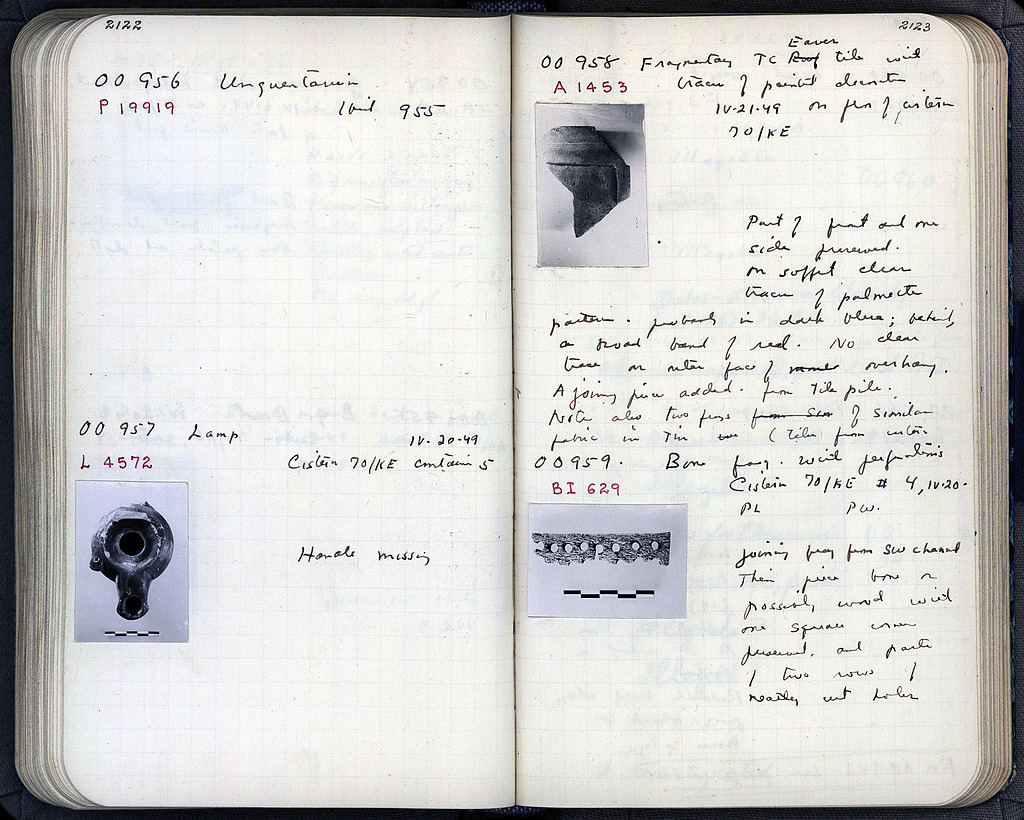 2122
OO 956 Unguentarium
P 19919 Ibid 955
OO 957 Lamp IV-20-49
L 4572 Cistern 70/KE container 5
Handle missing
2123
Eaves
OO 958 Fragmentary TC Roof tile with
A 1453 traces of painted decoration
IV-21-49 on floor of cistern
70/KE
Part of front and one
side preserved.
On soffit clear
traces of palmette
pattern. probably in dark blue; behind,
a broad band of red. No clear
trace on outer face of overhang.
A joining piece added. from Tile pile.
Note also two frags from SW of similar
fabric in Tin (Tiles from cistern
OO 959. Bone frag. with perforations
BI 629 Cistern 70/KE # 4, IV-20-
PL PW.
joining frag from SW channel
Thin piece bone or
possibly wood with
one square corner
preserved, and parts
of two rows of
neatly cut holes